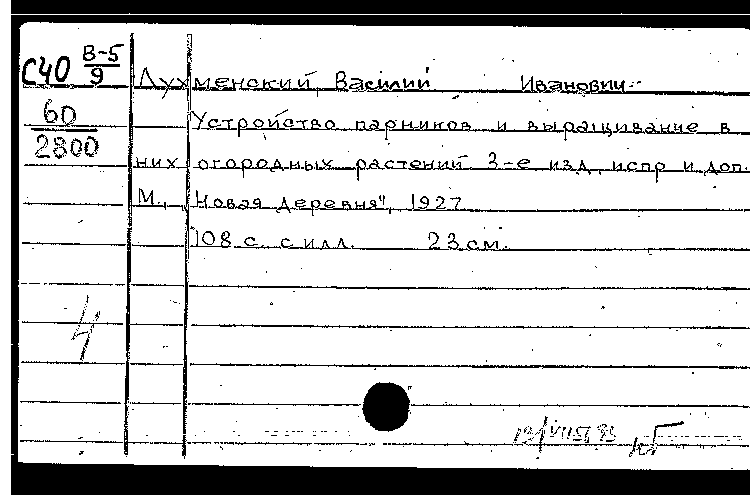 С40 В-5/9
Лухменский, Василий Иванович
60/2800
Устройство парников и выращивание в
них огородных растений 3-е изд, испр и доп.
М., Новая деревня", 1927
108 с. с илл. 23 см.
4